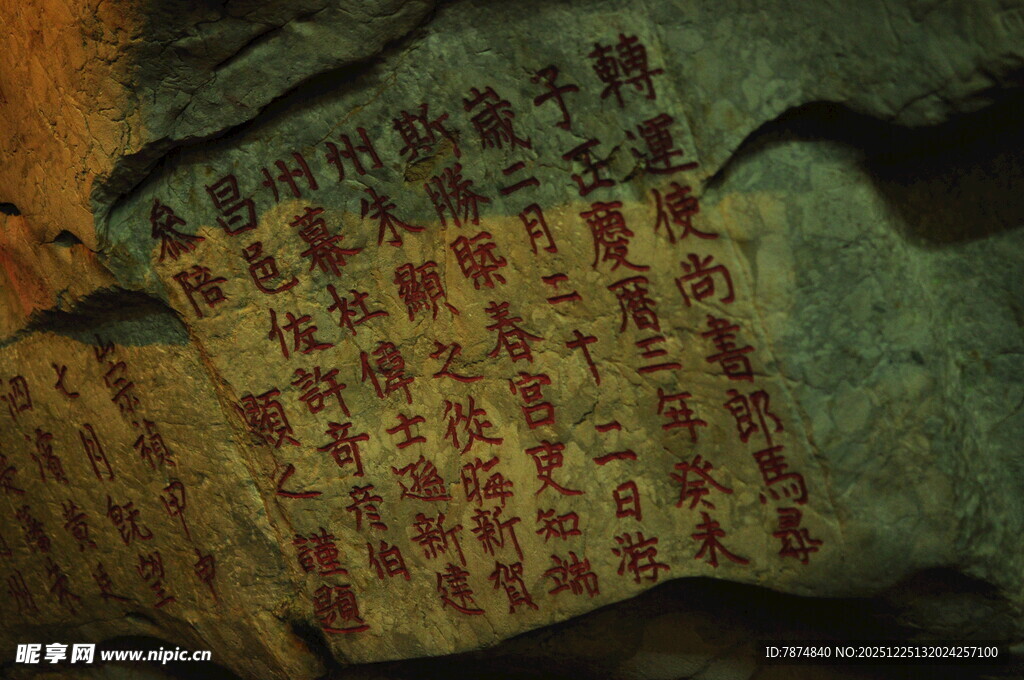 轉運使尚書郎馬尋
子正慶曆三年癸未
歲二月二十二日游
斯勝槩春宮吏知端
州朱顯之從晦新賀
州幕杜偉士遜新建
昌邑佐許奇彥伯
參陪 顯之 謹題
崇禎甲申
七月既望
泗濱黃
州
昵享网 www.nipic.cn
ID:7874840 NO:20251225132024257100